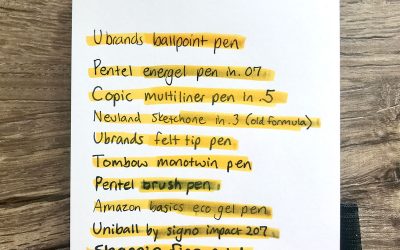 Ubrands ballpoint pen
Pentel energel pen in .07
Copic multiliner pen in .5
Neuland Sketchone in .3 (old formula)
Ubrands felt tip pen
Tombow monotwin pen
Pentel brush pen
Amazon basics eco gel pen
Uniball by signo impact 207